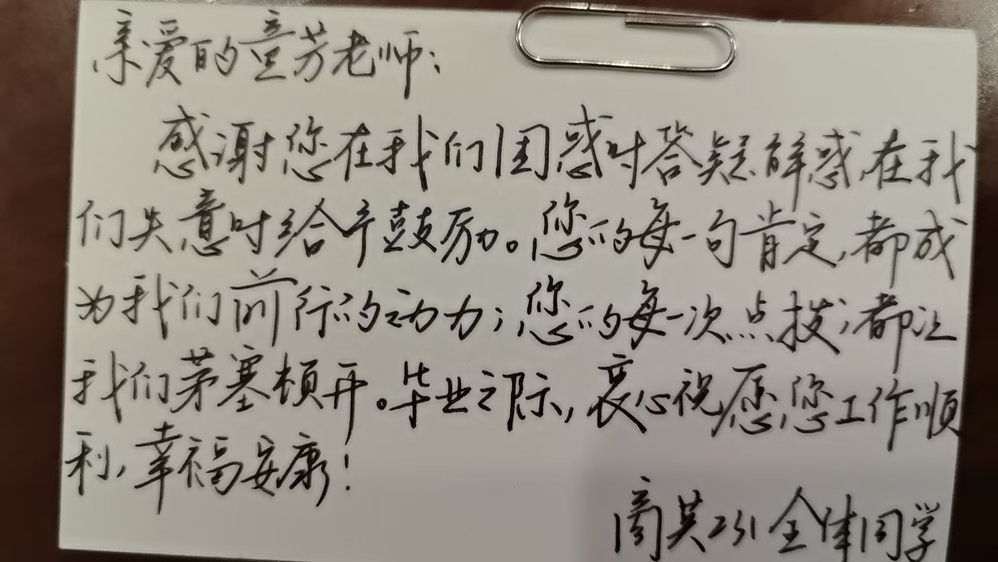 亲爱的童芳老师：
感谢您在我们困惑时答疑解惑，在我
们失意时给予鼓励。您的每一句肯定，都成
为我们前行的动力；您的每一次点拨，都让
我们茅塞顿开。毕业之际，衷心祝愿您工作顺
利，幸福安康！
商英231全体同学